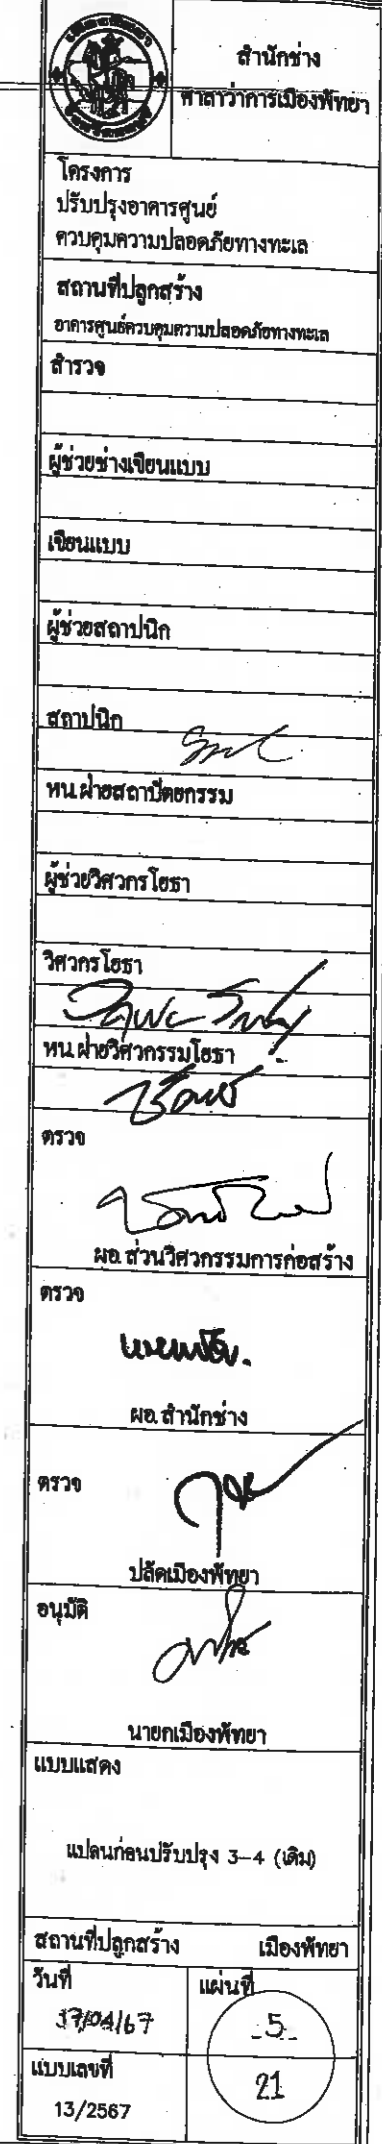 สำนักช่าง
ศาลาว่าการเมืองพัทยา
โครงการ
ปรับปรุงอาคารศูนย์
ควบคุมความปลอดภัยทางทะเล
สถานที่ปลูกสร้าง
อาคารศูนย์ควบคุมความปลอดภัยทางทะเล
สำรวจ
ผู้ช่วยช่างเขียนแบบ
เขียนแบบ
ผู้ช่วยสถาปนิก
สถาปนิก
หน.ฝ่ายสถาปัตยกรรม
ผู้ช่วยวิศวกรโยธา
วิศวกรโยธา
หน.ฝ่ายวิศวกรรมโยธา
ตรวจ
ผอ.ส่วนวิศวกรรมการก่อสร้าง
ตรวจ
ผอ.สำนักช่าง
ตรวจ
ปลัดเมืองพัทยา
อนุมัติ
นายกเมืองพัทยา
แบบแสดง
แปลนก่อนปรับปรุง 3-4 (เดิม)
สถานที่ปลูกสร้าง เมืองพัทยา
วันที่ แผ่นที่
17/04/67 5
แบบเลขที่ 21
13/2567